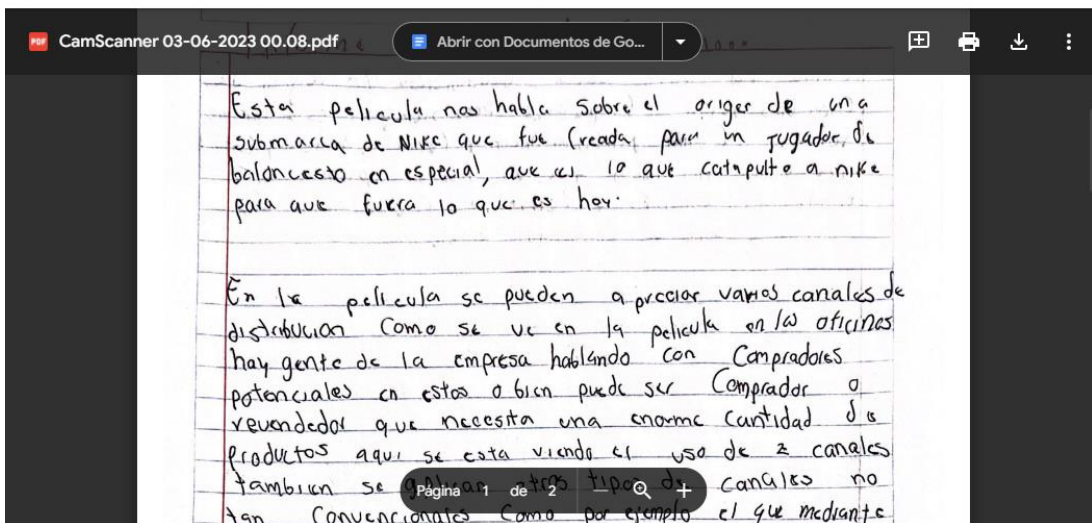 CamScanner 03-06-2023 00.08.pdf
Abrir con Documentos de Go...
Esta pelicula nos habla sobre el origer de una
submarca de NIKE que fue Creada para un jugador, de
baloncesto en especial, que es lo que catapulto a nike
para que fuera lo que es hoy.
En la pelicula se pueden apreciar varios canales de
distribucion Como se ve en la pelicula en las oficinas
hay gente de la empresa hablando con Compradores
potenciales en estos o bien puede ser Comprador o
revendedor que necesita una enorme Cantidad de
Productos aqui se esta viendo el uso de 2 canales
tambien se otros tipos de canales no
Página 1 de 2
tan Convencionales Como por ejemplo el que mediante